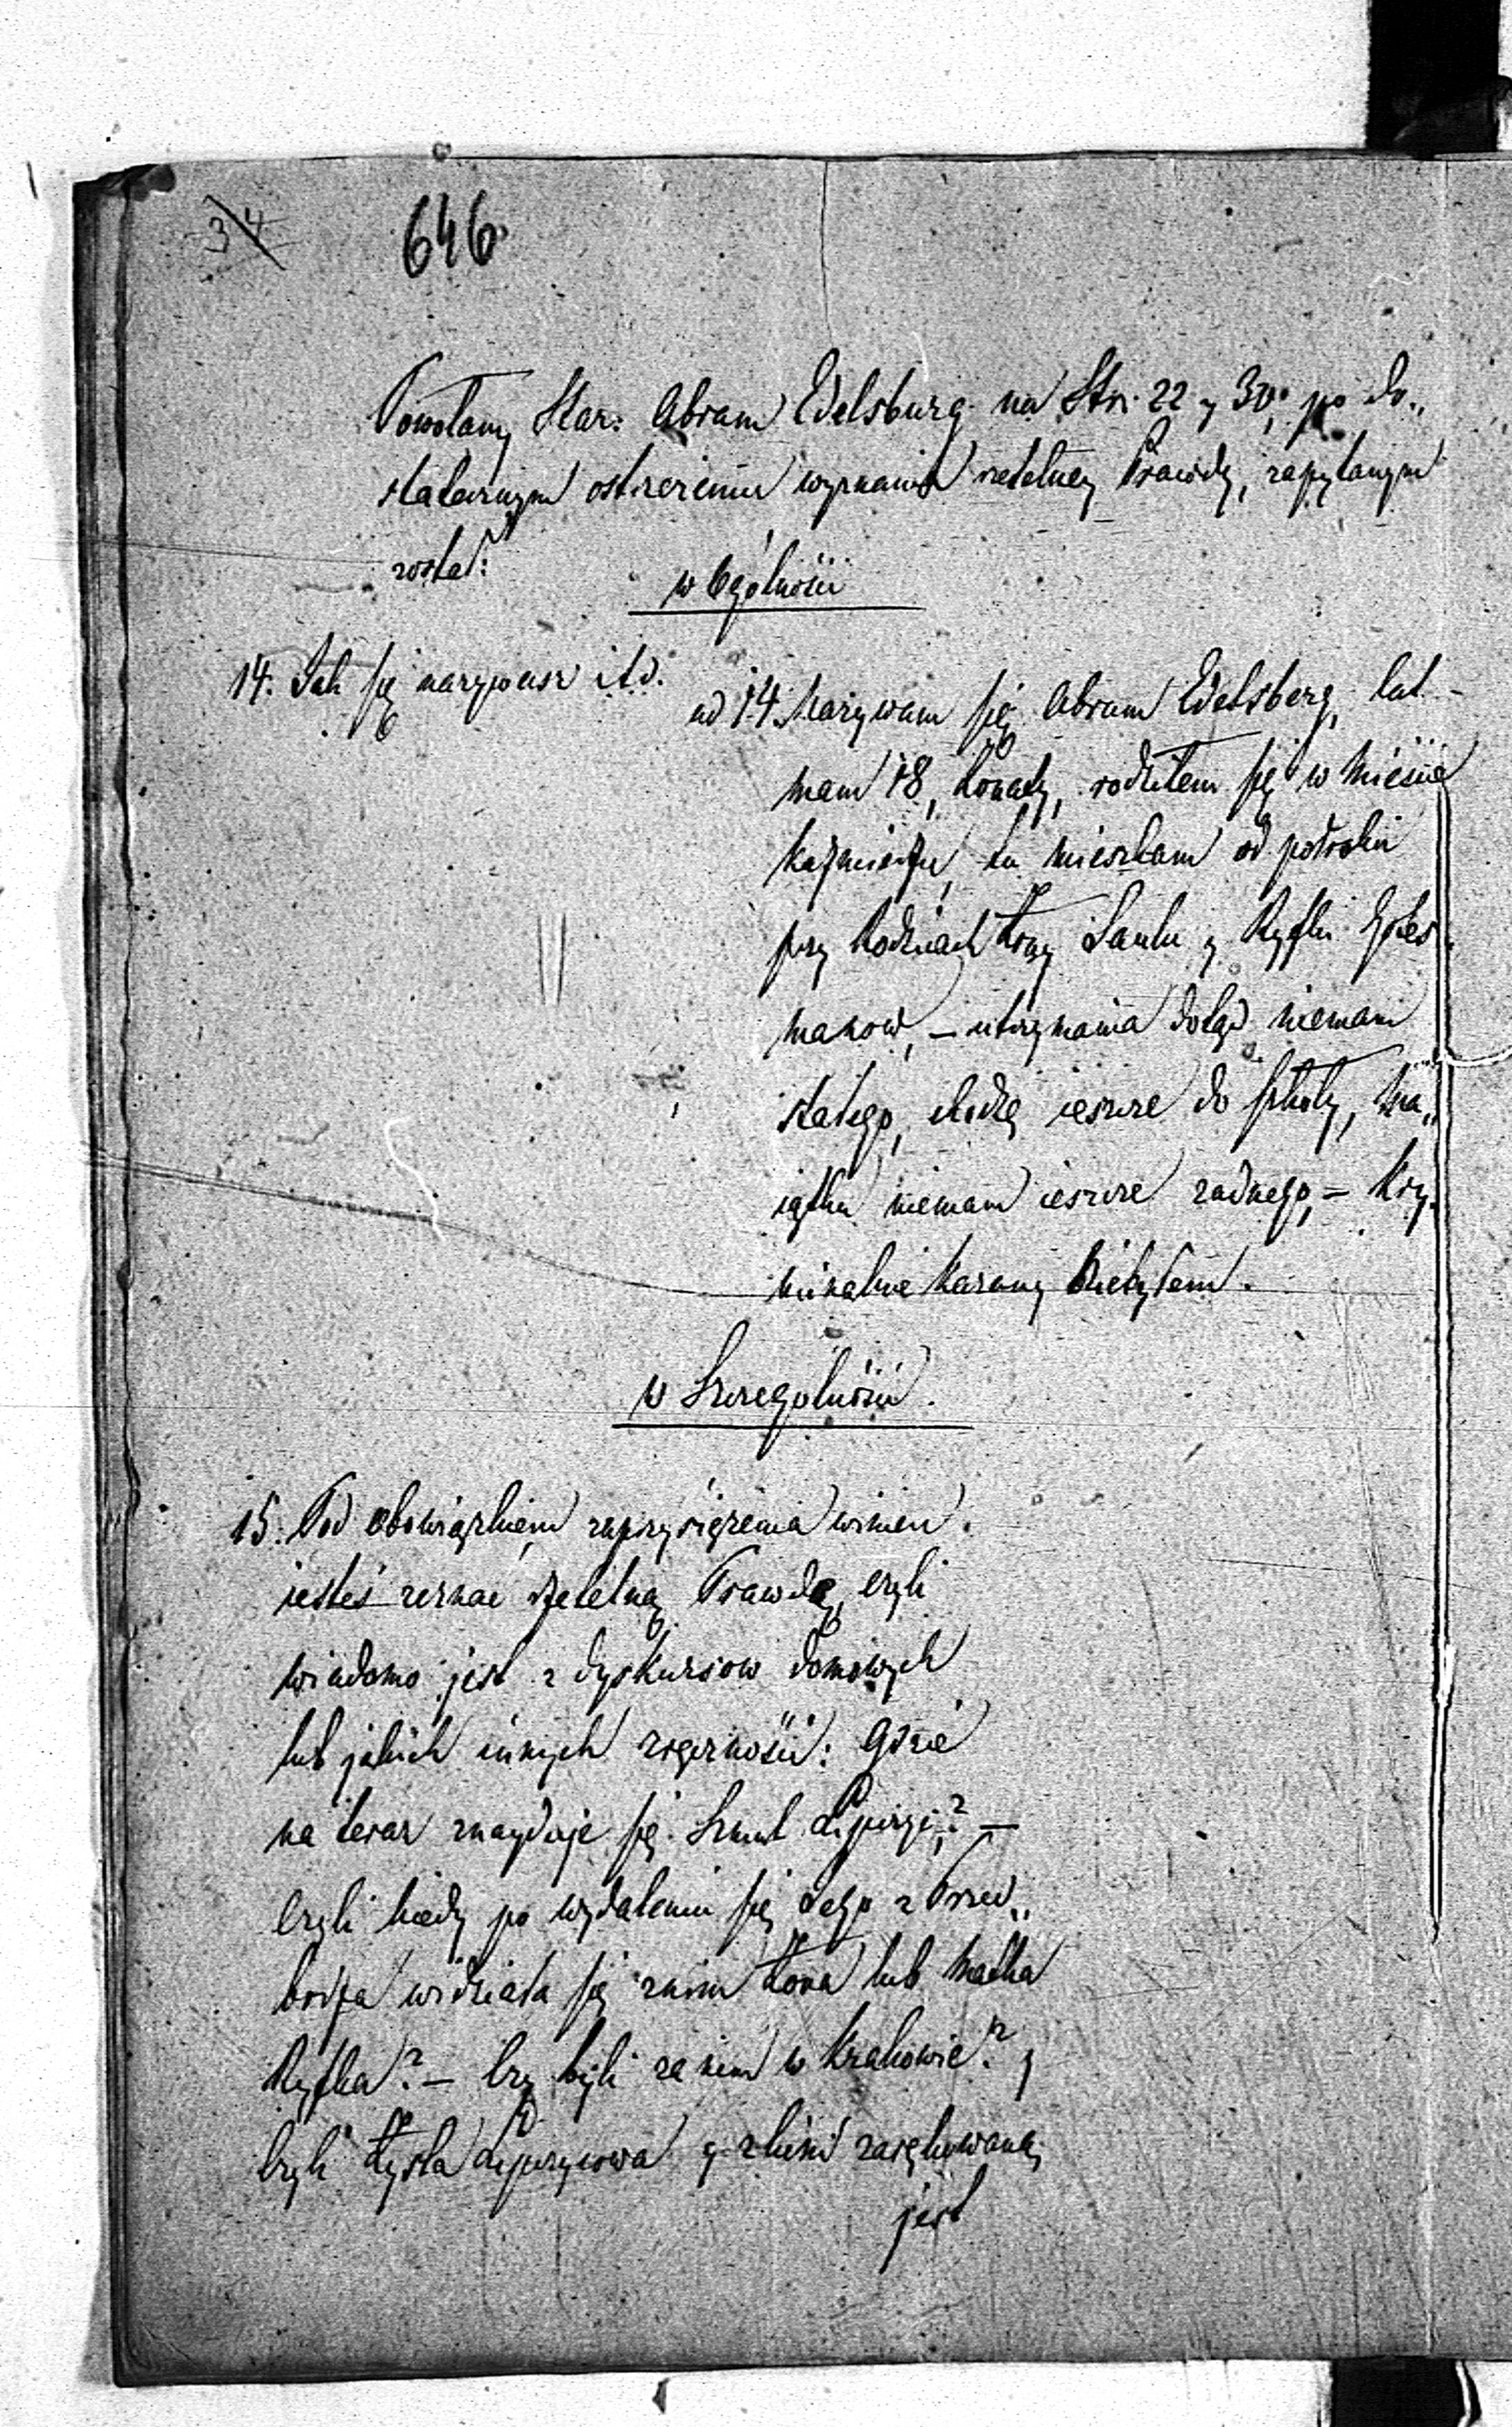 3/4
646.
Powołany Star: Abram Edelsburg na Str: 22 y 30, po do„
statecznym ostrzeżeniu wyznania rzetelney Prawdy, zapytanym
został:
w Ogólności
14. Jak się nazywasz i t.d.
ad 14. Nazywam się Abram Edelsberg, lat
mam 18, żonaty, rodziłem się w Mieście
Kaźmierzu, tu mieszkam od półroku
przy Rodzicach żony Saulu y Ryfki
manow, – utrzymania dotąd niemam
stałego, chodzę ieszcze do szkoły, Ma„
iątku niemam ieszcze żadnego, – Kry„
minalnie karany niebyłem.
w Szczegolności.
15. Pod obowiązkiem zaprzysiężenia winien
iesteś zeznać rzetelną Prawdę, czyli
wiadomo jest z dyskursow domowych
lub jakich innych zręczności: Gdzie
na teraz znayduje się Szmul ?–
czyli kiedy po wydaleniu się Jego z Przed„
borza widziała się z nim żona lub Matka
Ryfka? – Czy byli za nim w Krakowie? y
czyli y z kimś zaręczoną
jest